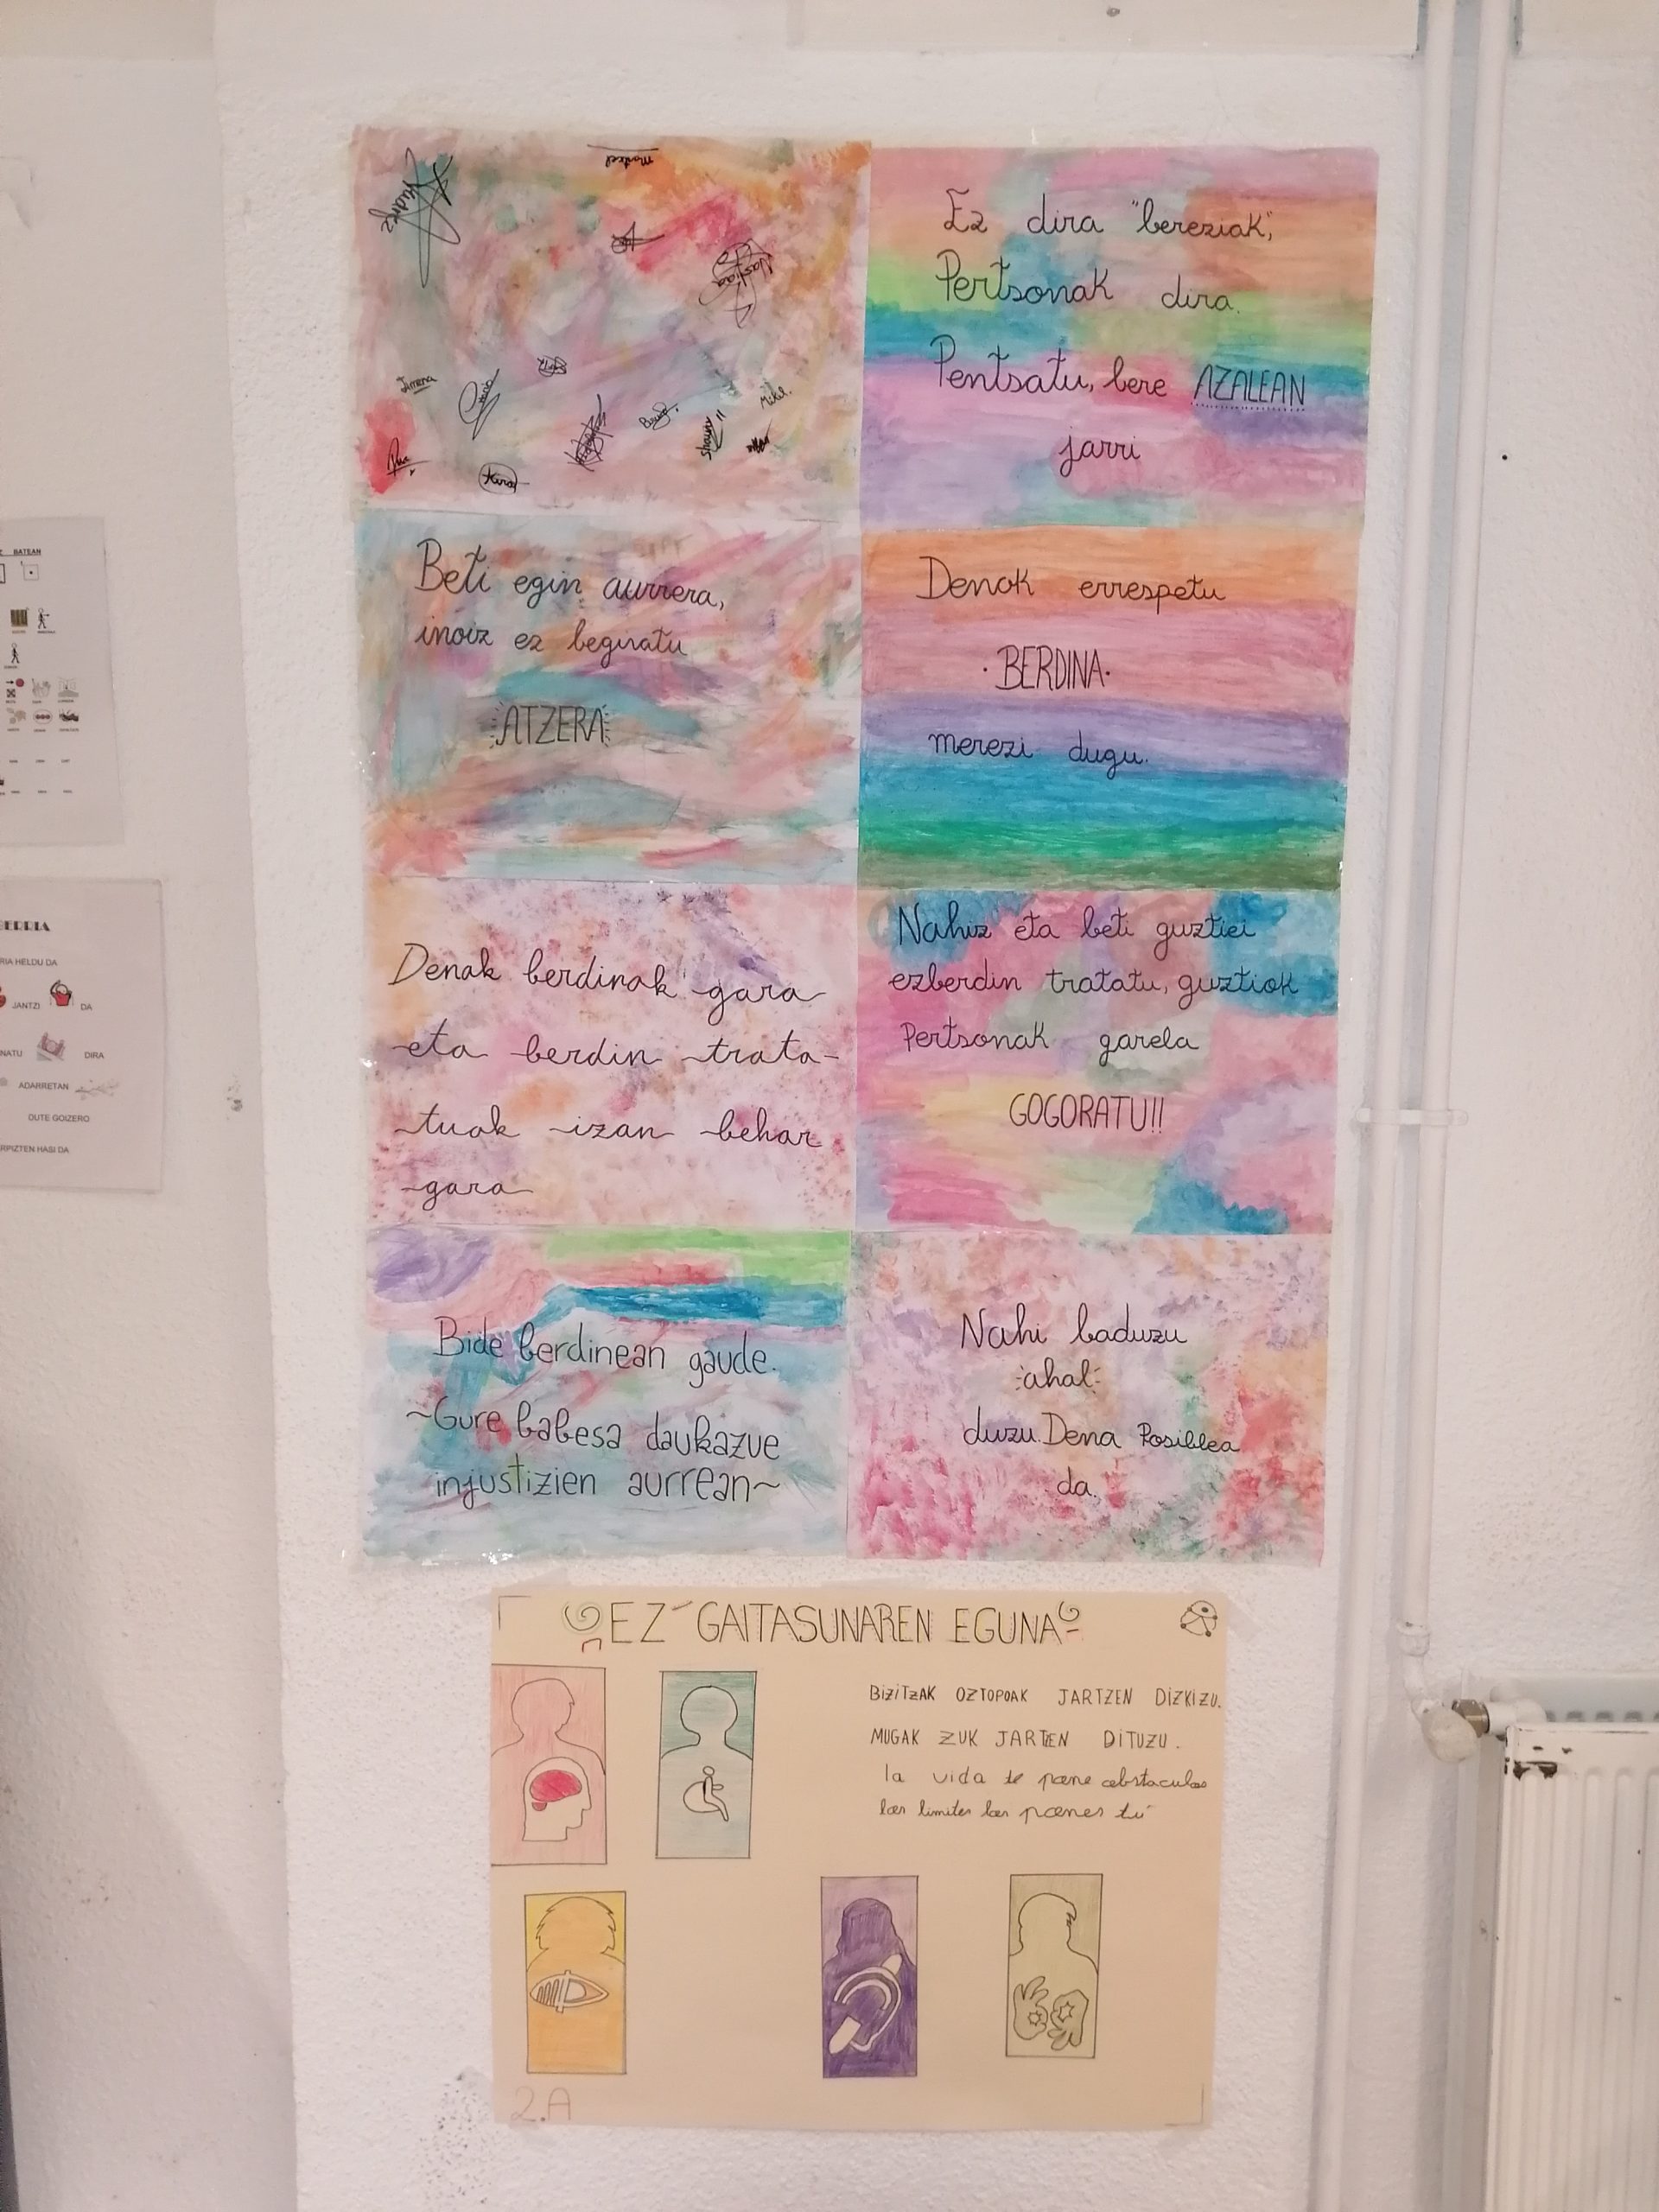 Markel
Nastiaa
Jimena
Mikel.
Shaun
Kira
Ez dira "bereziak";
Pertsonak dira.
Pentsatu, bere AZALEAN
jarri
Beti egin aurrera,
inoiz ez begiratu
ATZERA
Denok errespetu
·BERDINA·
merezi dugu.
Denak berdinak gara
eta berdin trata-
tuak izan behar
gara
Nahiz eta beti guztiei
ezberdin tratatu, guztiok
Pertsonak garela
GOGORATU!!
Bide berdinean gaude.
~Gure babesa daukazue
injustizien aurrean~
Nahi baduzu
ahal
duzu. Dena Posiblea
da.
EZ GAITASUNAREN EGUNA
BIZITZAK OZTOPOAK JARTZEN DIZKIZU.
MUGAK ZUK JARTZEN DITUZU.
la vida te pone obstaculos
los limites los pones tú
2.A
BATEAN
ERRIA
RIA HELDU DA
JANTZI DA
NATU DIRA
ADARRETAN
DUTE GOIZERO
RPIZTEN HASI DA